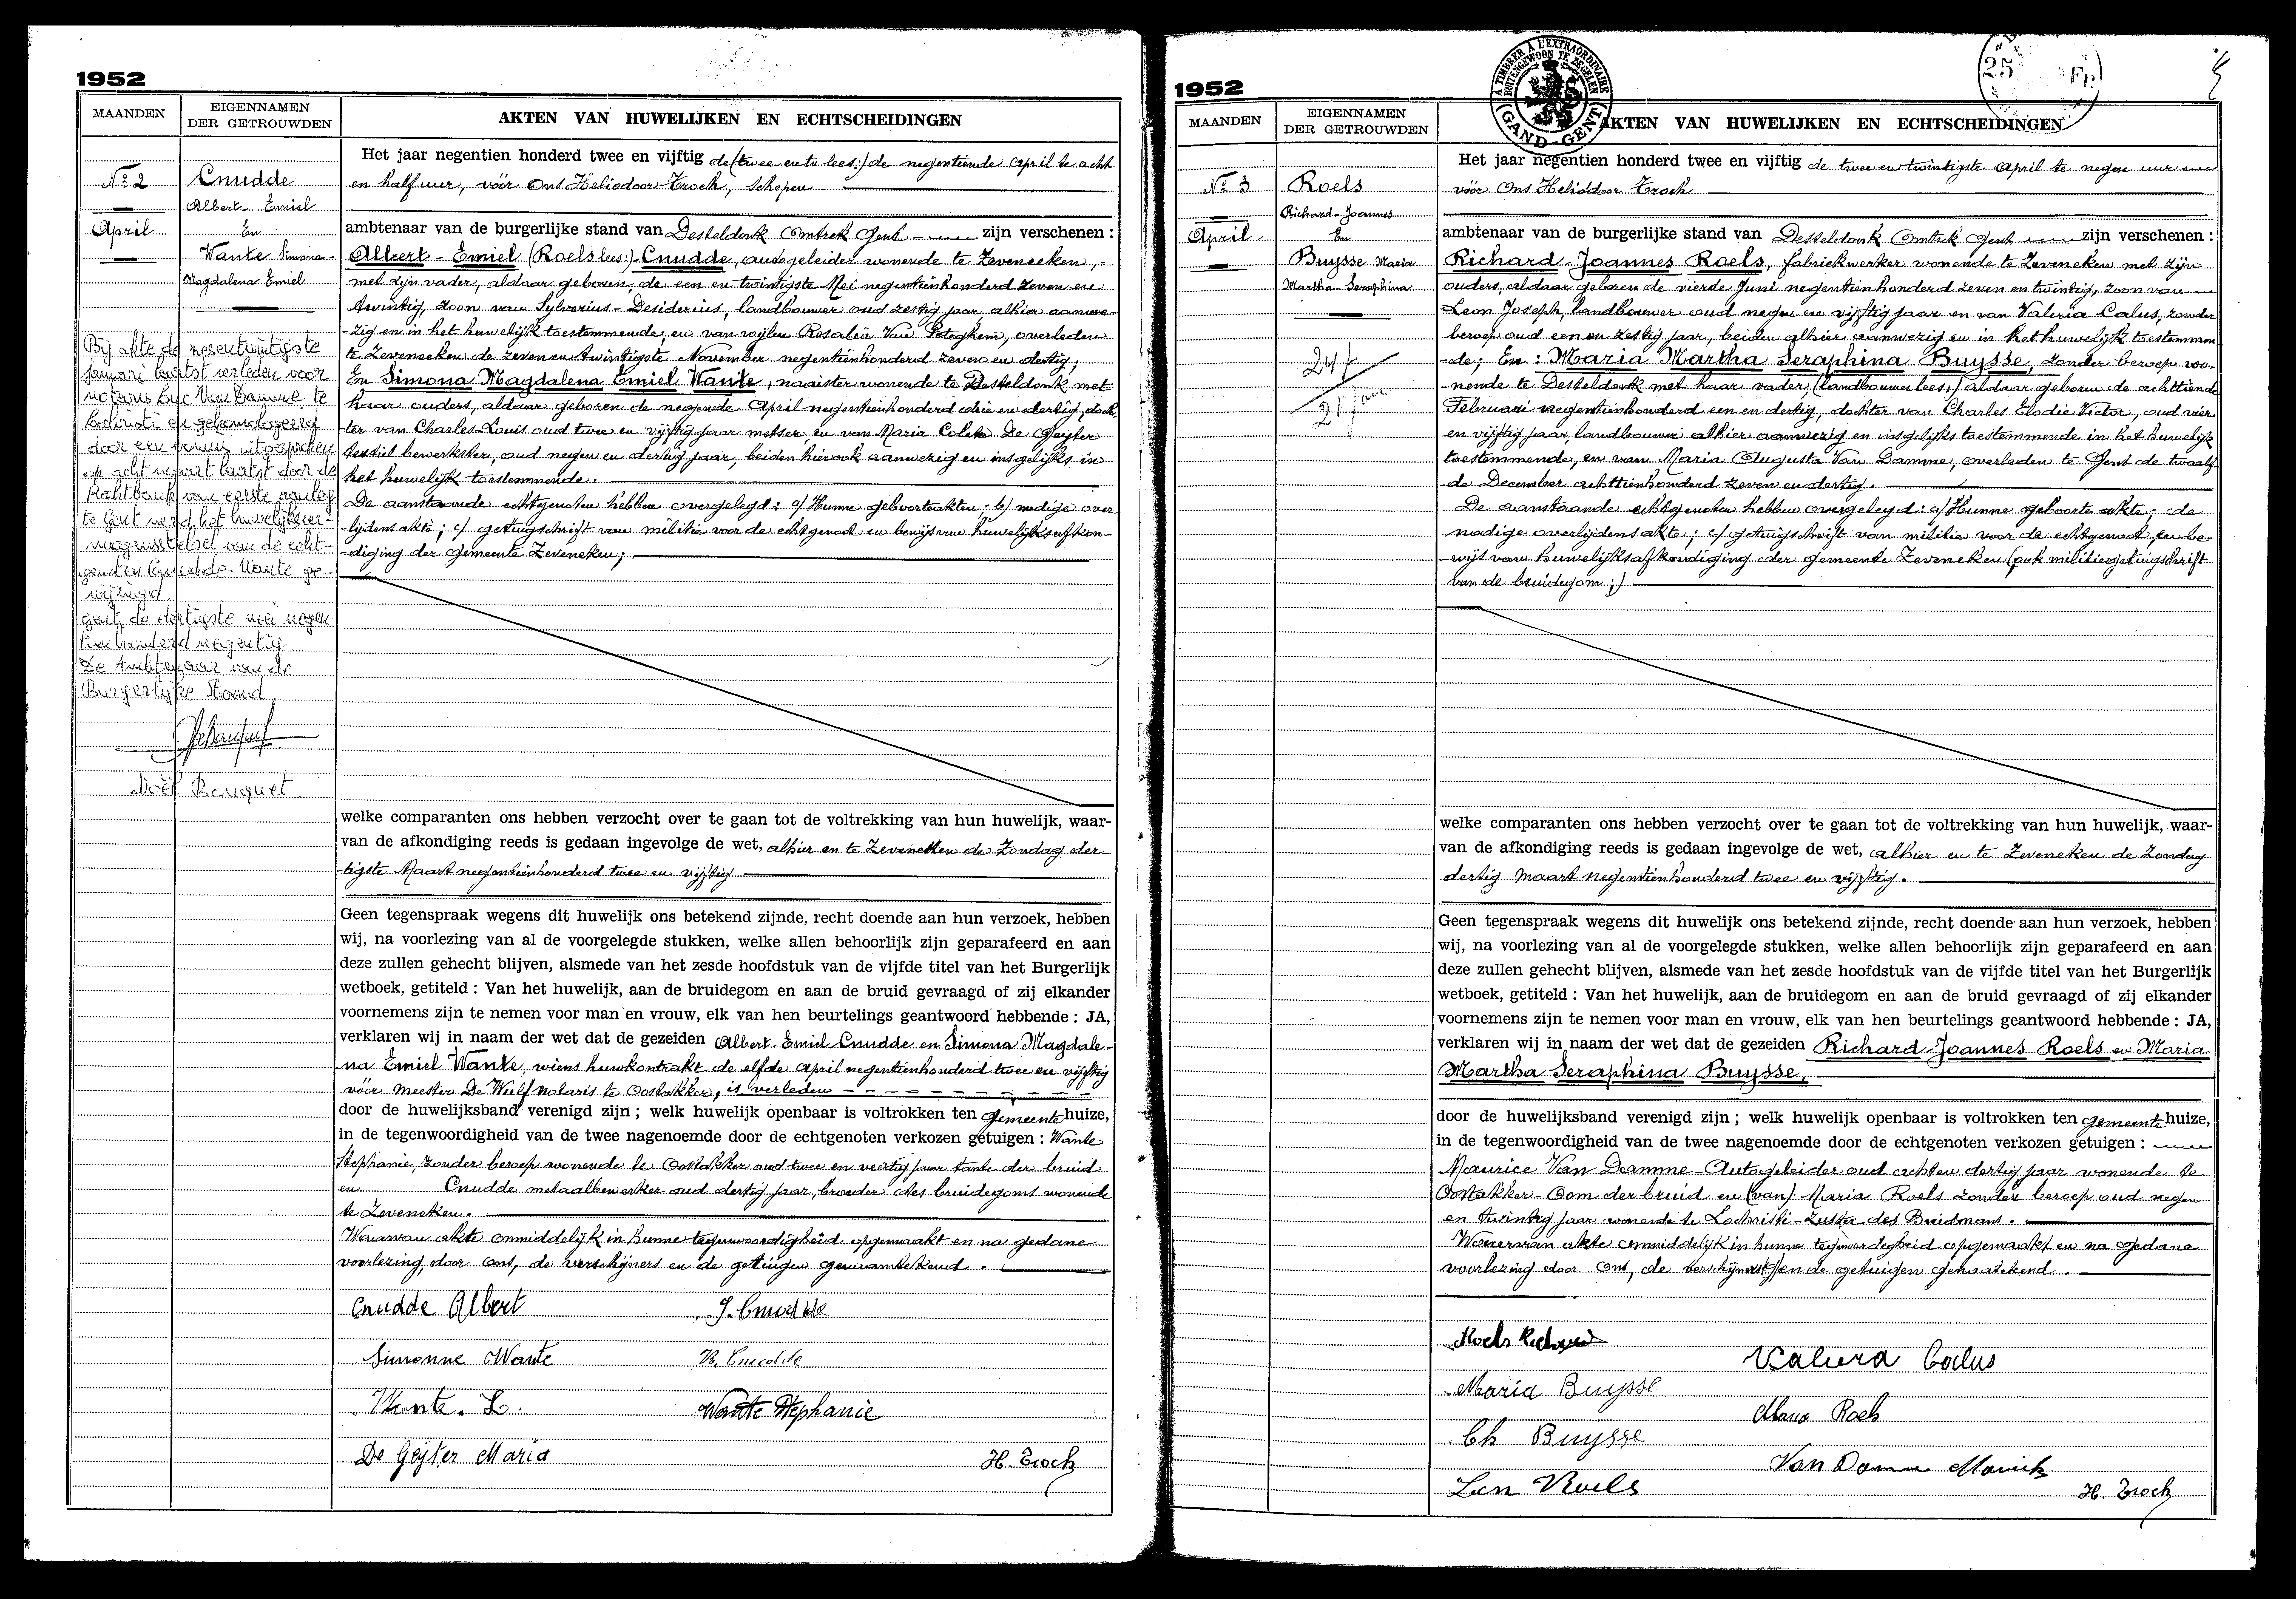 1952
MAANDEN
EIGENNAMEN
DER GETROUWDEN
AKTEN VAN HUWELIJKEN EN ECHTSCHEIDINGEN
No 2
April
Cnudde
Albert-Emiel
En
Wante Simona-
Magdalena Emiel
Bij akte de
januari laatst verleden voor
notaris Luc Van Damme te
Lochristi en gehomologeerd
door een vonnis uitgesproken
op acht maart laatst door de
Rechtbank van eerste aanleg
te Gent werd het huwelijksver-
mogensstelsel van de echt-
genoten Cnudde-Wante ge-
wijzigd.
Gent, de dertigste mei negen-
tienhonderd negentig
De Ambtenaar van de
Burgerlijke Stand,
Noël Bouquet
Het jaar negentien honderd twee en vijftig de (twee en tw lees:) de negentiende April te acht
en half uur, vóór Ons Heliodoor Troch, Schepen
ambtenaar van de burgerlijke stand van Desteldonk Omtrek Gent zijn verschenen :
Albert-Emiel (Roels lees:) Cnudde, autogeleider wonende te Zeveneken,
met zijn vader, aldaar geboren, de een en twintigste Mei negentienhonderd zeven en
twintig, zoon van Sylverius-Desiderius, landbouwer oud zestig jaar alhier aanwe-
-zig en in het huwelijk toestemmende, en van wijlen Rosalia Van Peteghem, overleden
te Zeveneeken de zeven en twintigste November negentienhonderd zeven en dertig;
En Simona Magdalena Emiel Wante, naaister wonende te Desteldonk met
haar ouders, aldaar geboren de negende April negentienhonderd drie en dertig, doch-
ter van Charles-Louis oud twee en vijftig jaar metser, en van Maria Coleta De Geijter
textiel bewerkster, oud negen en dertig jaar, beiden hier ook aanwezig en insgelijks in
het huwelijk toestemmende.
De aanstaande echtgenoten hebben overgelegd : a/ Hunne geboorteakten; b/ nodige over-
-lijdensakte; c/ getuigschrift van militie voor de echtgenoot en bewijs van huwelijksafkon-
-diging der gemeente Zeveneken;
welke comparanten ons hebben verzocht over te gaan tot de voltrekking van hun huwelijk, waar-
van de afkondiging reeds is gedaan ingevolge de wet, alhier en te Zeveneken de Zondag der-
-tigste Maart negentienhonderd twee en vijftig
Geen tegenspraak wegens dit huwelijk ons betekend zijnde, recht doende aan hun verzoek, hebben
wij, na voorlezing van al de voorgelegde stukken, welke allen behoorlijk zijn geparafeerd en aan
deze zullen gehecht blijven, alsmede van het zesde hoofdstuk van de vijfde titel van het Burgerlijk
wetboek, getiteld : Van het huwelijk, aan de bruidegom en aan de bruid gevraagd of zij elkander
voornemens zijn te nemen voor man en vrouw, elk van hen beurtelings geantwoord hebbende : JA,
verklaren wij in naam der wet dat de gezeiden Albert Emiel Cnudde en Simona Magdale-
na Emiel Wante, wiens huwkontrakt de elfde April negentienhonderd twee en vijftig
vóór meester De Wulf Notaris te Oostakker, is verleden
door de huwelijksband verenigd zijn ; welk huwelijk openbaar is voltrokken ten gemeente huize,
in de tegenwoordigheid van de twee nagenoemde door de echtgenoten verkozen getuigen : Wante
Stephanie, zonder beroep wonende te Oostakker oud twee en veertig jaar tante der bruid
en Cnudde metaalbewerker oud dertig jaar, broeder des bruidegoms wonende
te Zeveneken.
Waarvan akte onmiddelijk in hunne tegenwoordigheid opgemaakt en na gedane
voorlezing, door Ons, de verschijners en de getuigen genaamtekend.
Cnudde Albert
S. Cnudde
Simonne Wante
R. Cnudde
Wante. L.
Wante Stephanie
De Geyter Maria
H. Troch
1952
A TIMBRER A L'EXTRAORDINAIRE
BUITENGEWOON TE ZEGELEN
GAND-GENT
25 Fr
MAANDEN
EIGENNAMEN
DER GETROUWDEN
AKTEN VAN HUWELIJKEN EN ECHTSCHEIDINGEN
No 3
April
Roels
Richard-Joannes
En
Buysse Maria
Martha-Seraphina
24
21 jaar
Het jaar negentien honderd twee en vijftig de twee en twintigste April te negen uur
vóór Ons Heliodoor Troch
ambtenaar van de burgerlijke stand van Desteldonk Omtrek Gent zijn verschenen :
Richard Joannes Roels, fabriekwerker wonende te Zeveneken met zijn
ouders, aldaar geboren de vierde Juni negentienhonderd zeven en twintig, zoon van
Leon Joseph, landbouwer oud negen en vijftig jaar en van Valeria Calus, zonder
beroep oud een en zestig jaar, beiden alhier aanwezig en in het huwelijk toestemmen
-de; En : Maria Martha Seraphina Buysse, zonder beroep wo-
-nende te Desteldonk met haar vader, (landbouwer lees:) aldaar geboren de achttiende
Februari negentienhonderd een en dertig, dochter van Charles Elodie Victor, oud vier
en vijftig jaar landbouwer alhier aanwezig en insgelijks toestemmende in het huwelijk
toestemmende, en van Maria Augusta Van Damme, overleden te Gent de twaalf-
de December achttienhonderd zeven en dertig.
De aanstaande echtgenoten hebben overgelegd : a/ Hunne geboorte akte; de
nodige overlijdensakte; c/ getuigschrift van militie voor de echtgenoot en be-
-wijs van huwelijksafkondiging der gemeente Zeveneken (ook militiegetuigschrift
van de bruidegom;)
welke comparanten ons hebben verzocht over te gaan tot de voltrekking van hun huwelijk, waar-
van de afkondiging reeds is gedaan ingevolge de wet, alhier en te Zeveneken de Zondag
dertig Maart negentienhonderd twee en vijftig.
Geen tegenspraak wegens dit huwelijk ons betekend zijnde, recht doende aan hun verzoek, hebben
wij, na voorlezing van al de voorgelegde stukken, welke allen behoorlijk zijn geparafeerd en aan
deze zullen gehecht blijven, alsmede van het zesde hoofdstuk van de vijfde titel van het Burgerlijk
wetboek, getiteld : Van het huwelijk, aan de bruidegom en aan de bruid gevraagd of zij elkander
voornemens zijn te nemen voor man en vrouw, elk van hen beurtelings geantwoord hebbende : JA,
verklaren wij in naam der wet dat de gezeiden Richard-Joannes Roels en Maria
Martha Seraphina Buysse,
door de huwelijksband verenigd zijn ; welk huwelijk openbaar is voltrokken ten gemeente huize,
in de tegenwoordigheid van de twee nagenoemde door de echtgenoten verkozen getuigen :
Maurice Van Damme-Autogeleider oud acht en dertig jaar wonende te
Oostakker-Oom der bruid en (van) Maria Roels zonder beroep oud negen
en twintig jaar wonende te Lochristi-zuster des Bruidmans.
Waarvan akte onmiddelijk in hunne tegenwoordigheid opgemaakt en na gedane
voorlezing door Ons, de verschijners en de getuigen genaamtekend.
Roels Richard
Valeria Calus
Maria Buysse
Maria Roels
Ch Buysse
Van Damme Maurits
Leon Roels
H. Troch